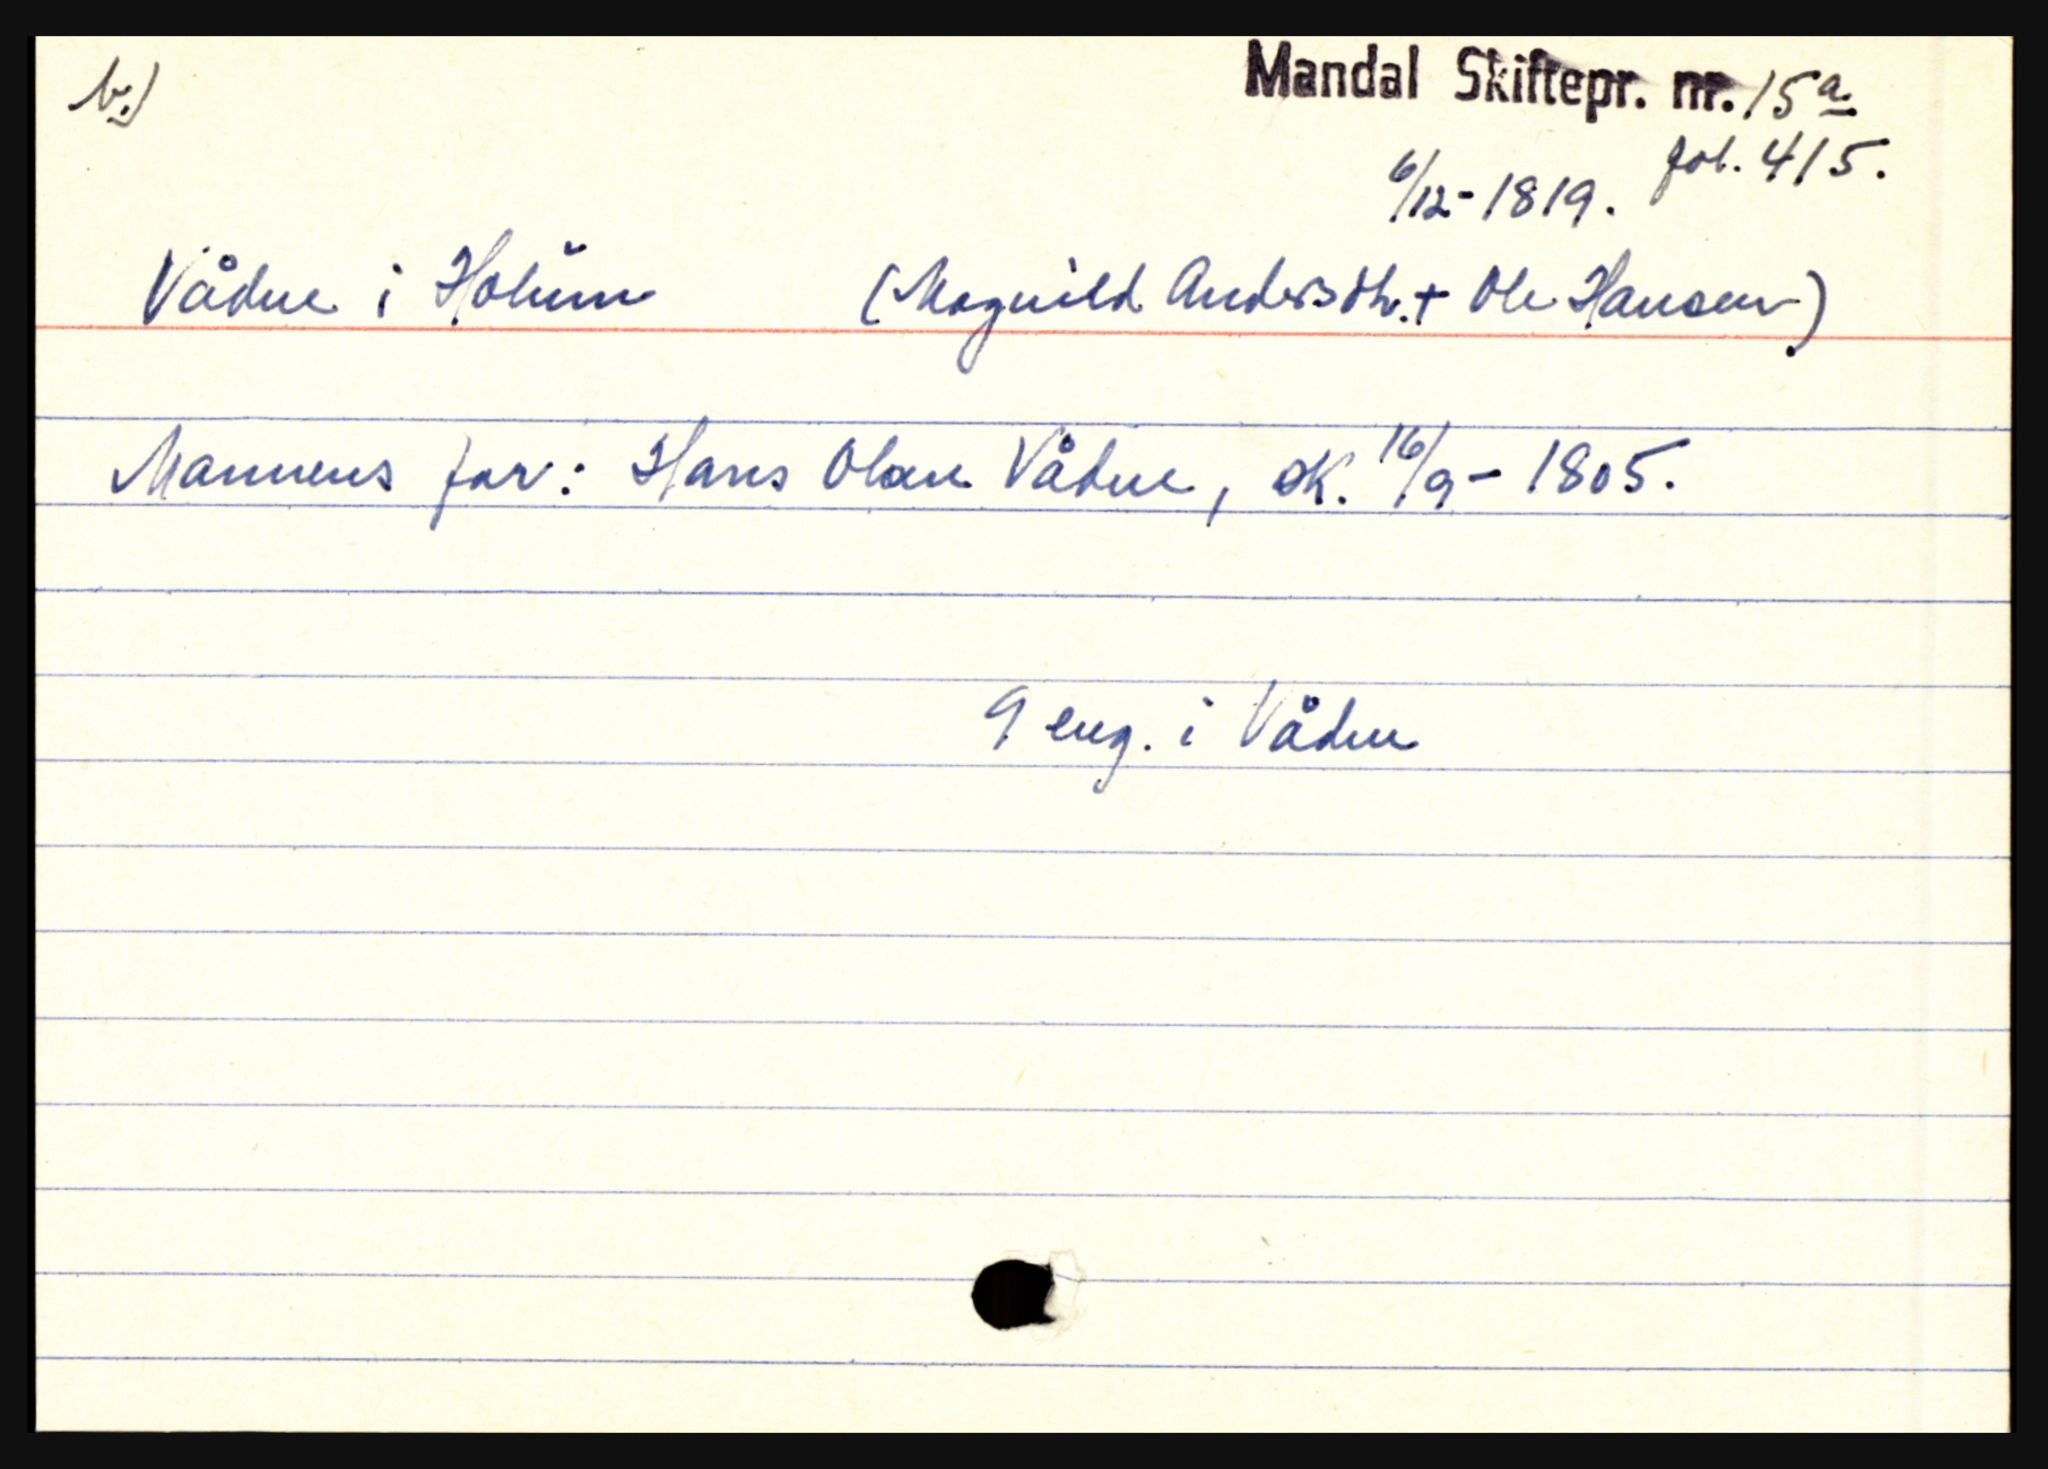 b.)
Mandal Skiftepr. nr. 15a.
fol. 415.
6/12-1819.
Vådne i Holum (Magnild Andersdtr. + Ole Hansen)
Mannens far: Hans Olsen Vådne, sk. 16/9-1805.
9 eng. i Vådne